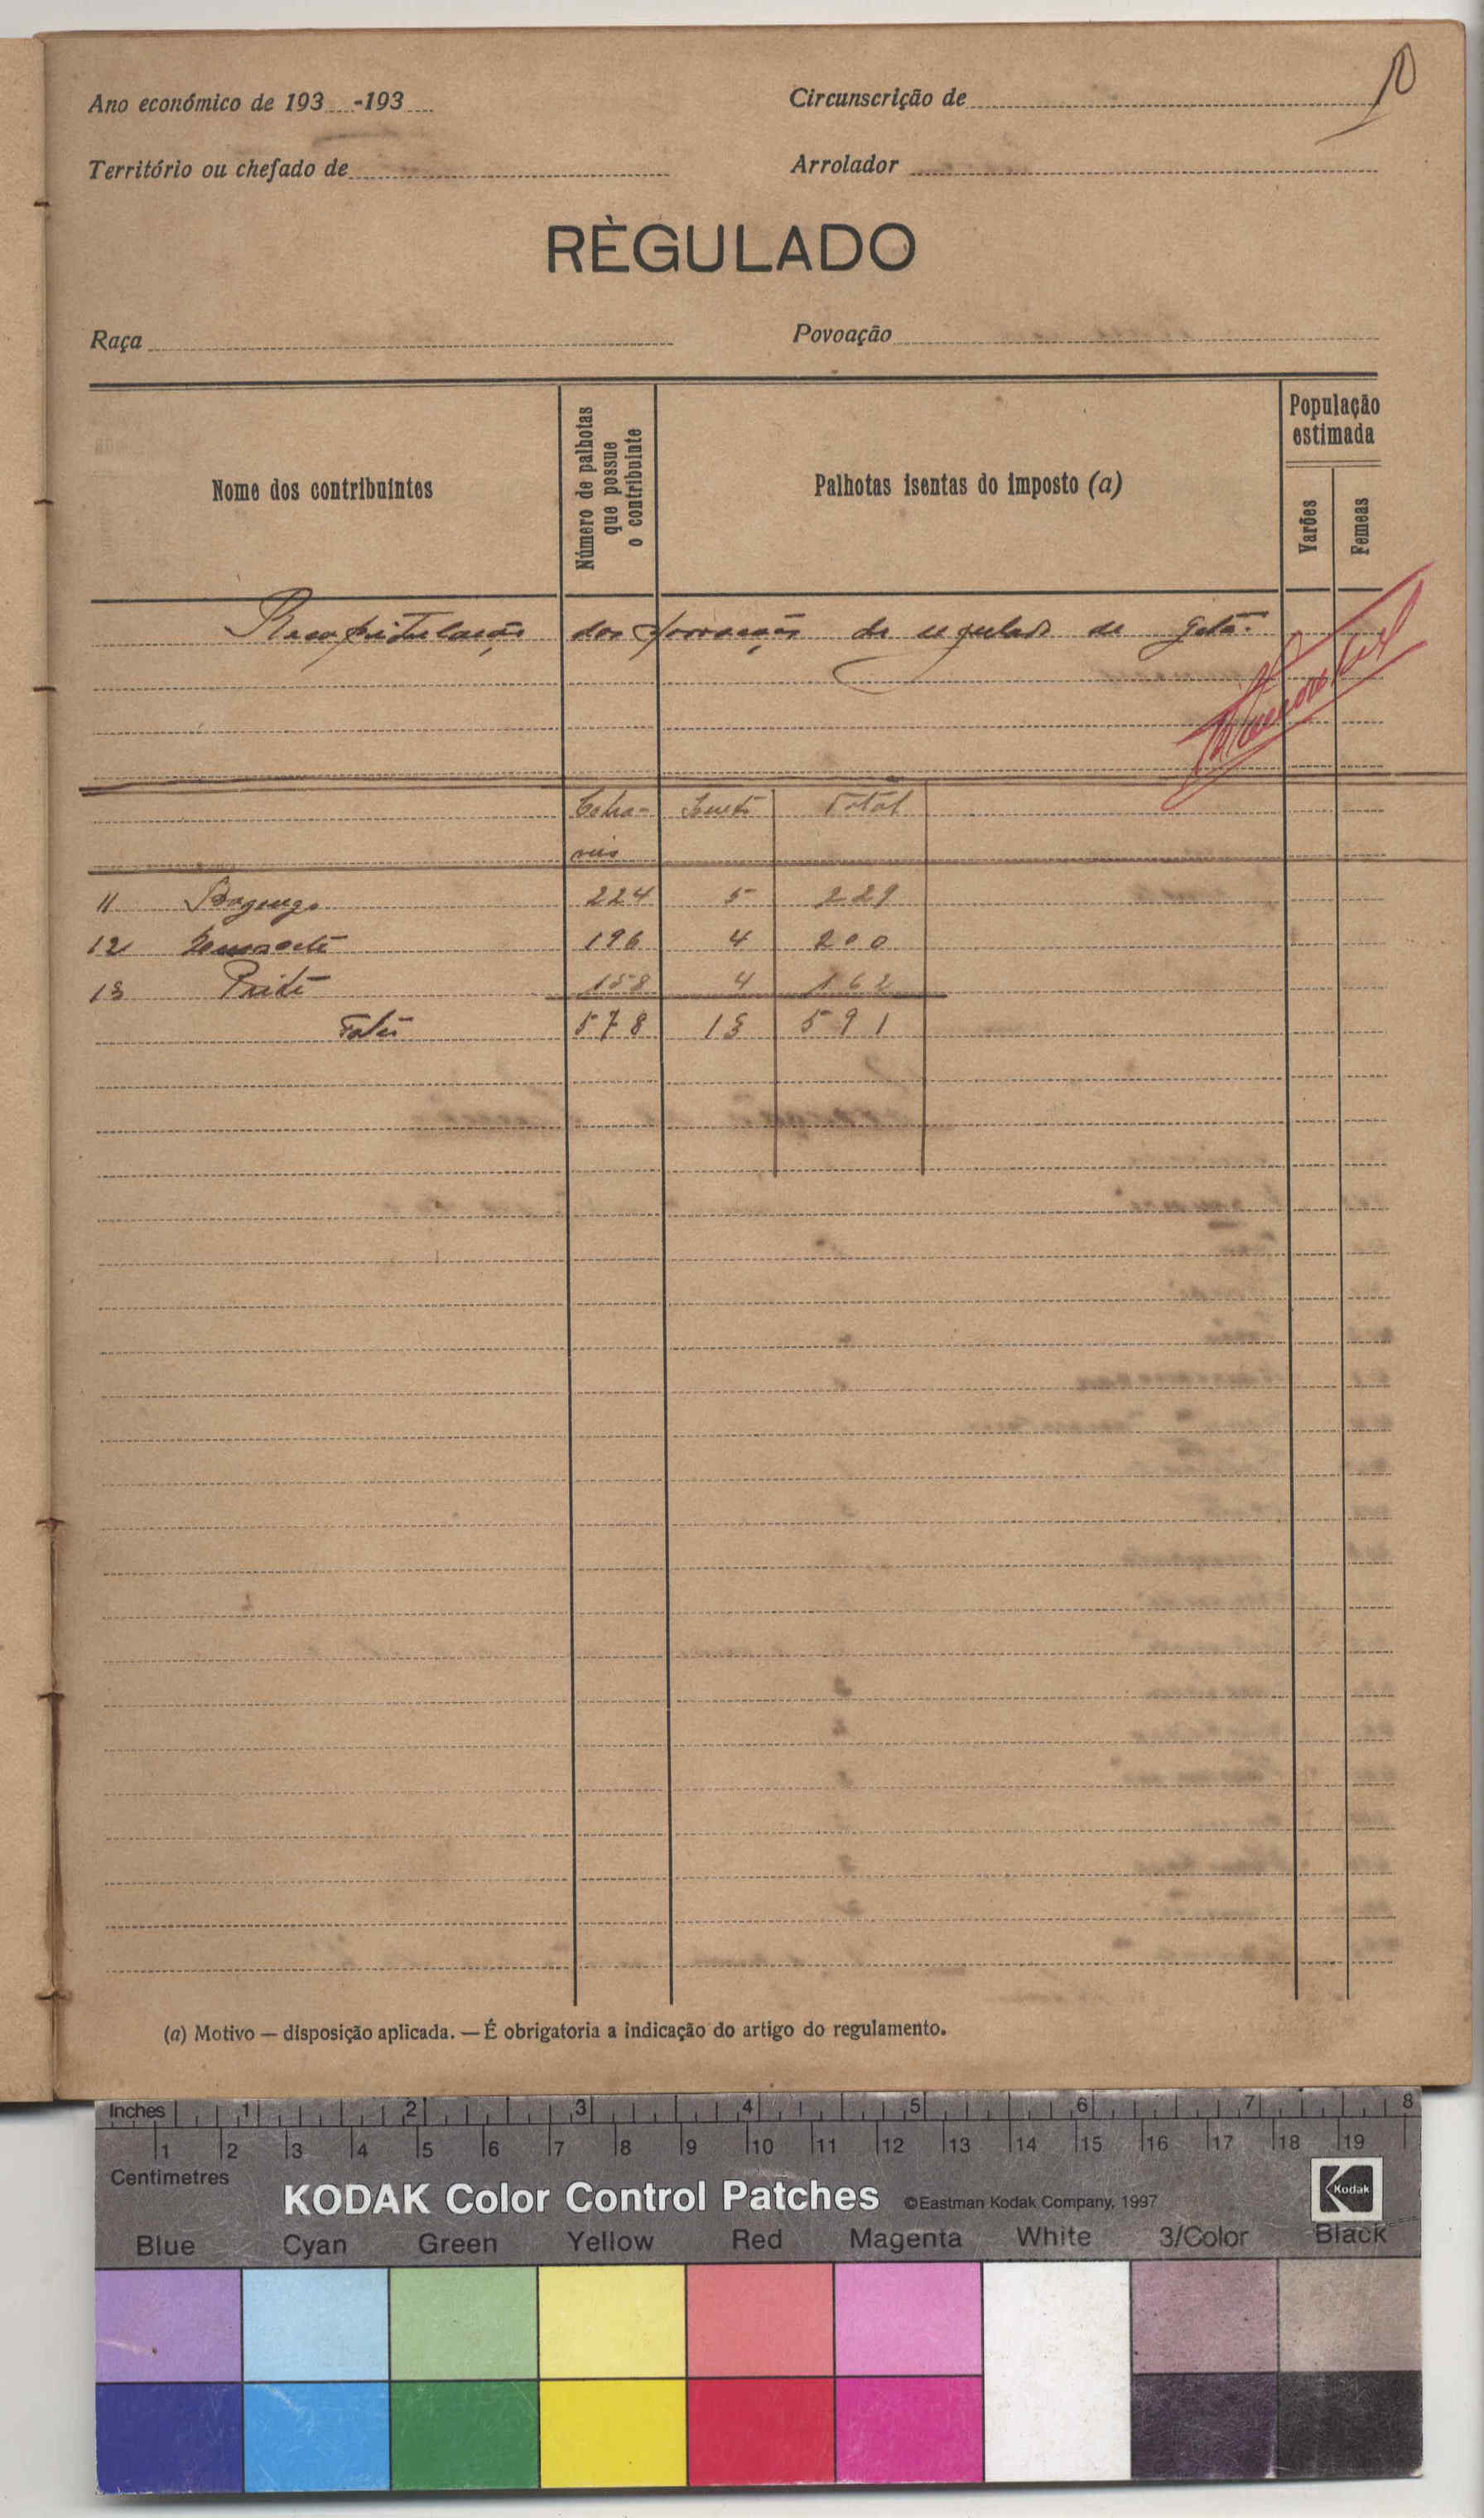 Ano económico de 193 -193
Circunscrição de
Território ou chefado de
Arrolador
RÈGULADO
Raça
Povoação
Nome dos contribuintes
Número de palhotas que possue o contribuinte
Palhotas isentas do imposto (a)
População estimada
Varões
Femeas
Recapitulação das povoações do regulado de
Cobra-
veis
Total
11 224 5 229
12 196 4 200
13 158 4 162
578 13 591
(a) Motivo — disposição aplicada. — É obrigatoria a indicação do artigo do regulamento.
Inches 1 2 3 4 5 6 7 8
1 2 3 4 5 6 7 8 9 10 11 12 13 14 15 16 17 18 19
Centimetres
KODAK Color Control Patches ©Eastman Kodak Company, 1997 Kodak
Blue Cyan Green Yellow Red Magenta White 3/Color Black